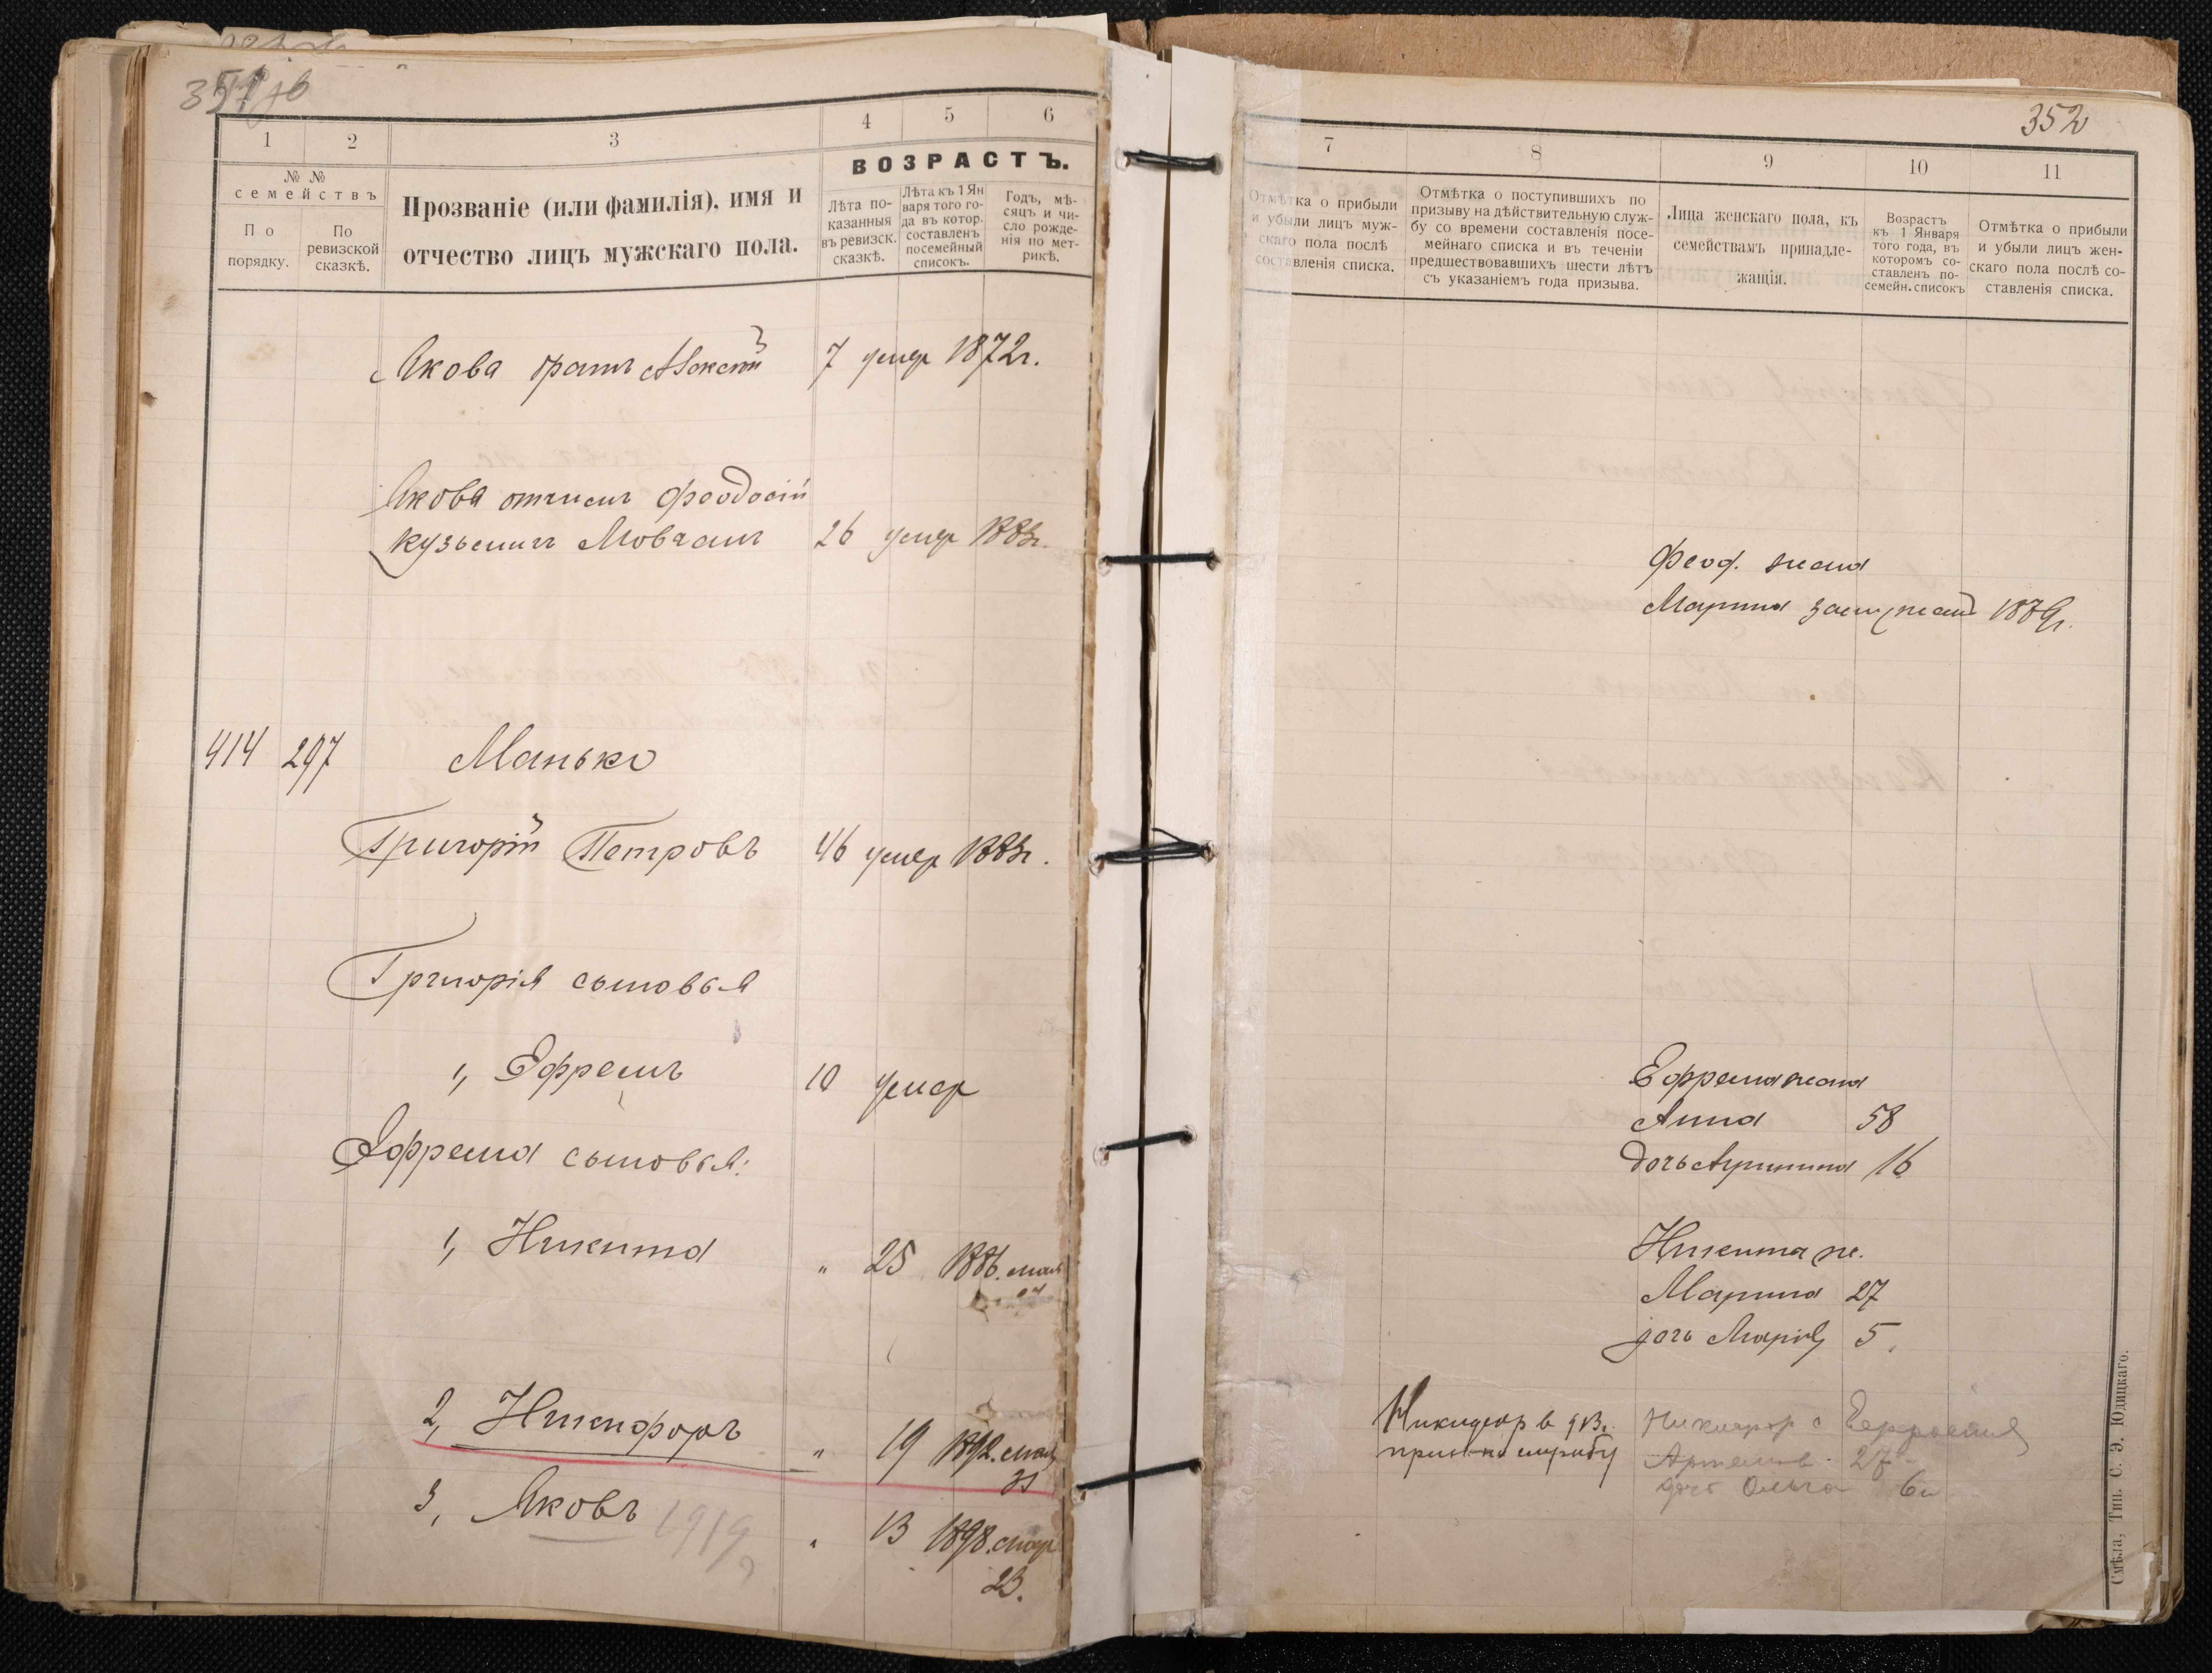 352
1 2 3 4 5 6
№ №
семействъ
По
порядку.
По
ревизской
сказкѣ.
Прозваніе (или фамилія), имя и
отчество лицъ мужскаго пола.
ВОЗРАСТЪ.
Лѣта по-
казанныя
въ ревизск.
сказкѣ.
Лѣта къ 1 Ян
варя того го-
да въ котор.
составленъ
посемейный
списокъ.
Годъ, мѣ-
сяцъ и чи-
сло рожде-
нія по мет-
рикѣ.
Якова братъ Алексѣй 7 умер 1872г.
Якова отчимъ Феодосій
Кузьмичъ Мовчанъ 26 умер 1883г.
414 297 Манько
Григорій Петровъ 46 умер 1883г.
Григорія сыновья
1, Ефремъ 10 умер
Ефрема сыновья:
1, Никита „ 25 1886. мая
2, Никифоръ „ 19 1892. мая
31
3, Яковъ 1919 „ 13 1898. мар
23.
7 8 9 10 11
Отмѣтка о прибыли
и убыли лицъ муж-
скаго пола послѣ
составленія списка.
Отмѣтка о поступившихъ по
призыву на дѣйствительную служ-
бу со времени составленія посе-
мейнаго списка и въ теченіи
предшествовавшихъ шести лѣтъ
съ указаніемъ года призыва.
Лица женскаго пола, къ
семействамъ принадле-
жащія.
Возрастъ
къ 1 Января
того года, въ
которомъ со-
ставленъ по-
семейн. списокъ
Отмѣтка о прибыли
и убыли лицъ жен-
скаго пола послѣ со-
ставленія списка.
Феод. жена
Марина замужем 1879г.
Ефрема жена
Анна 58
дочь Агрипина 16
Никита ж.
Марина 27
дочь Марія 5
Никифор в 913г.
прин. на службу
Никифор
27
дочь Ольга 6
Смѣла, Тип. С. Э. Юдицкаго.